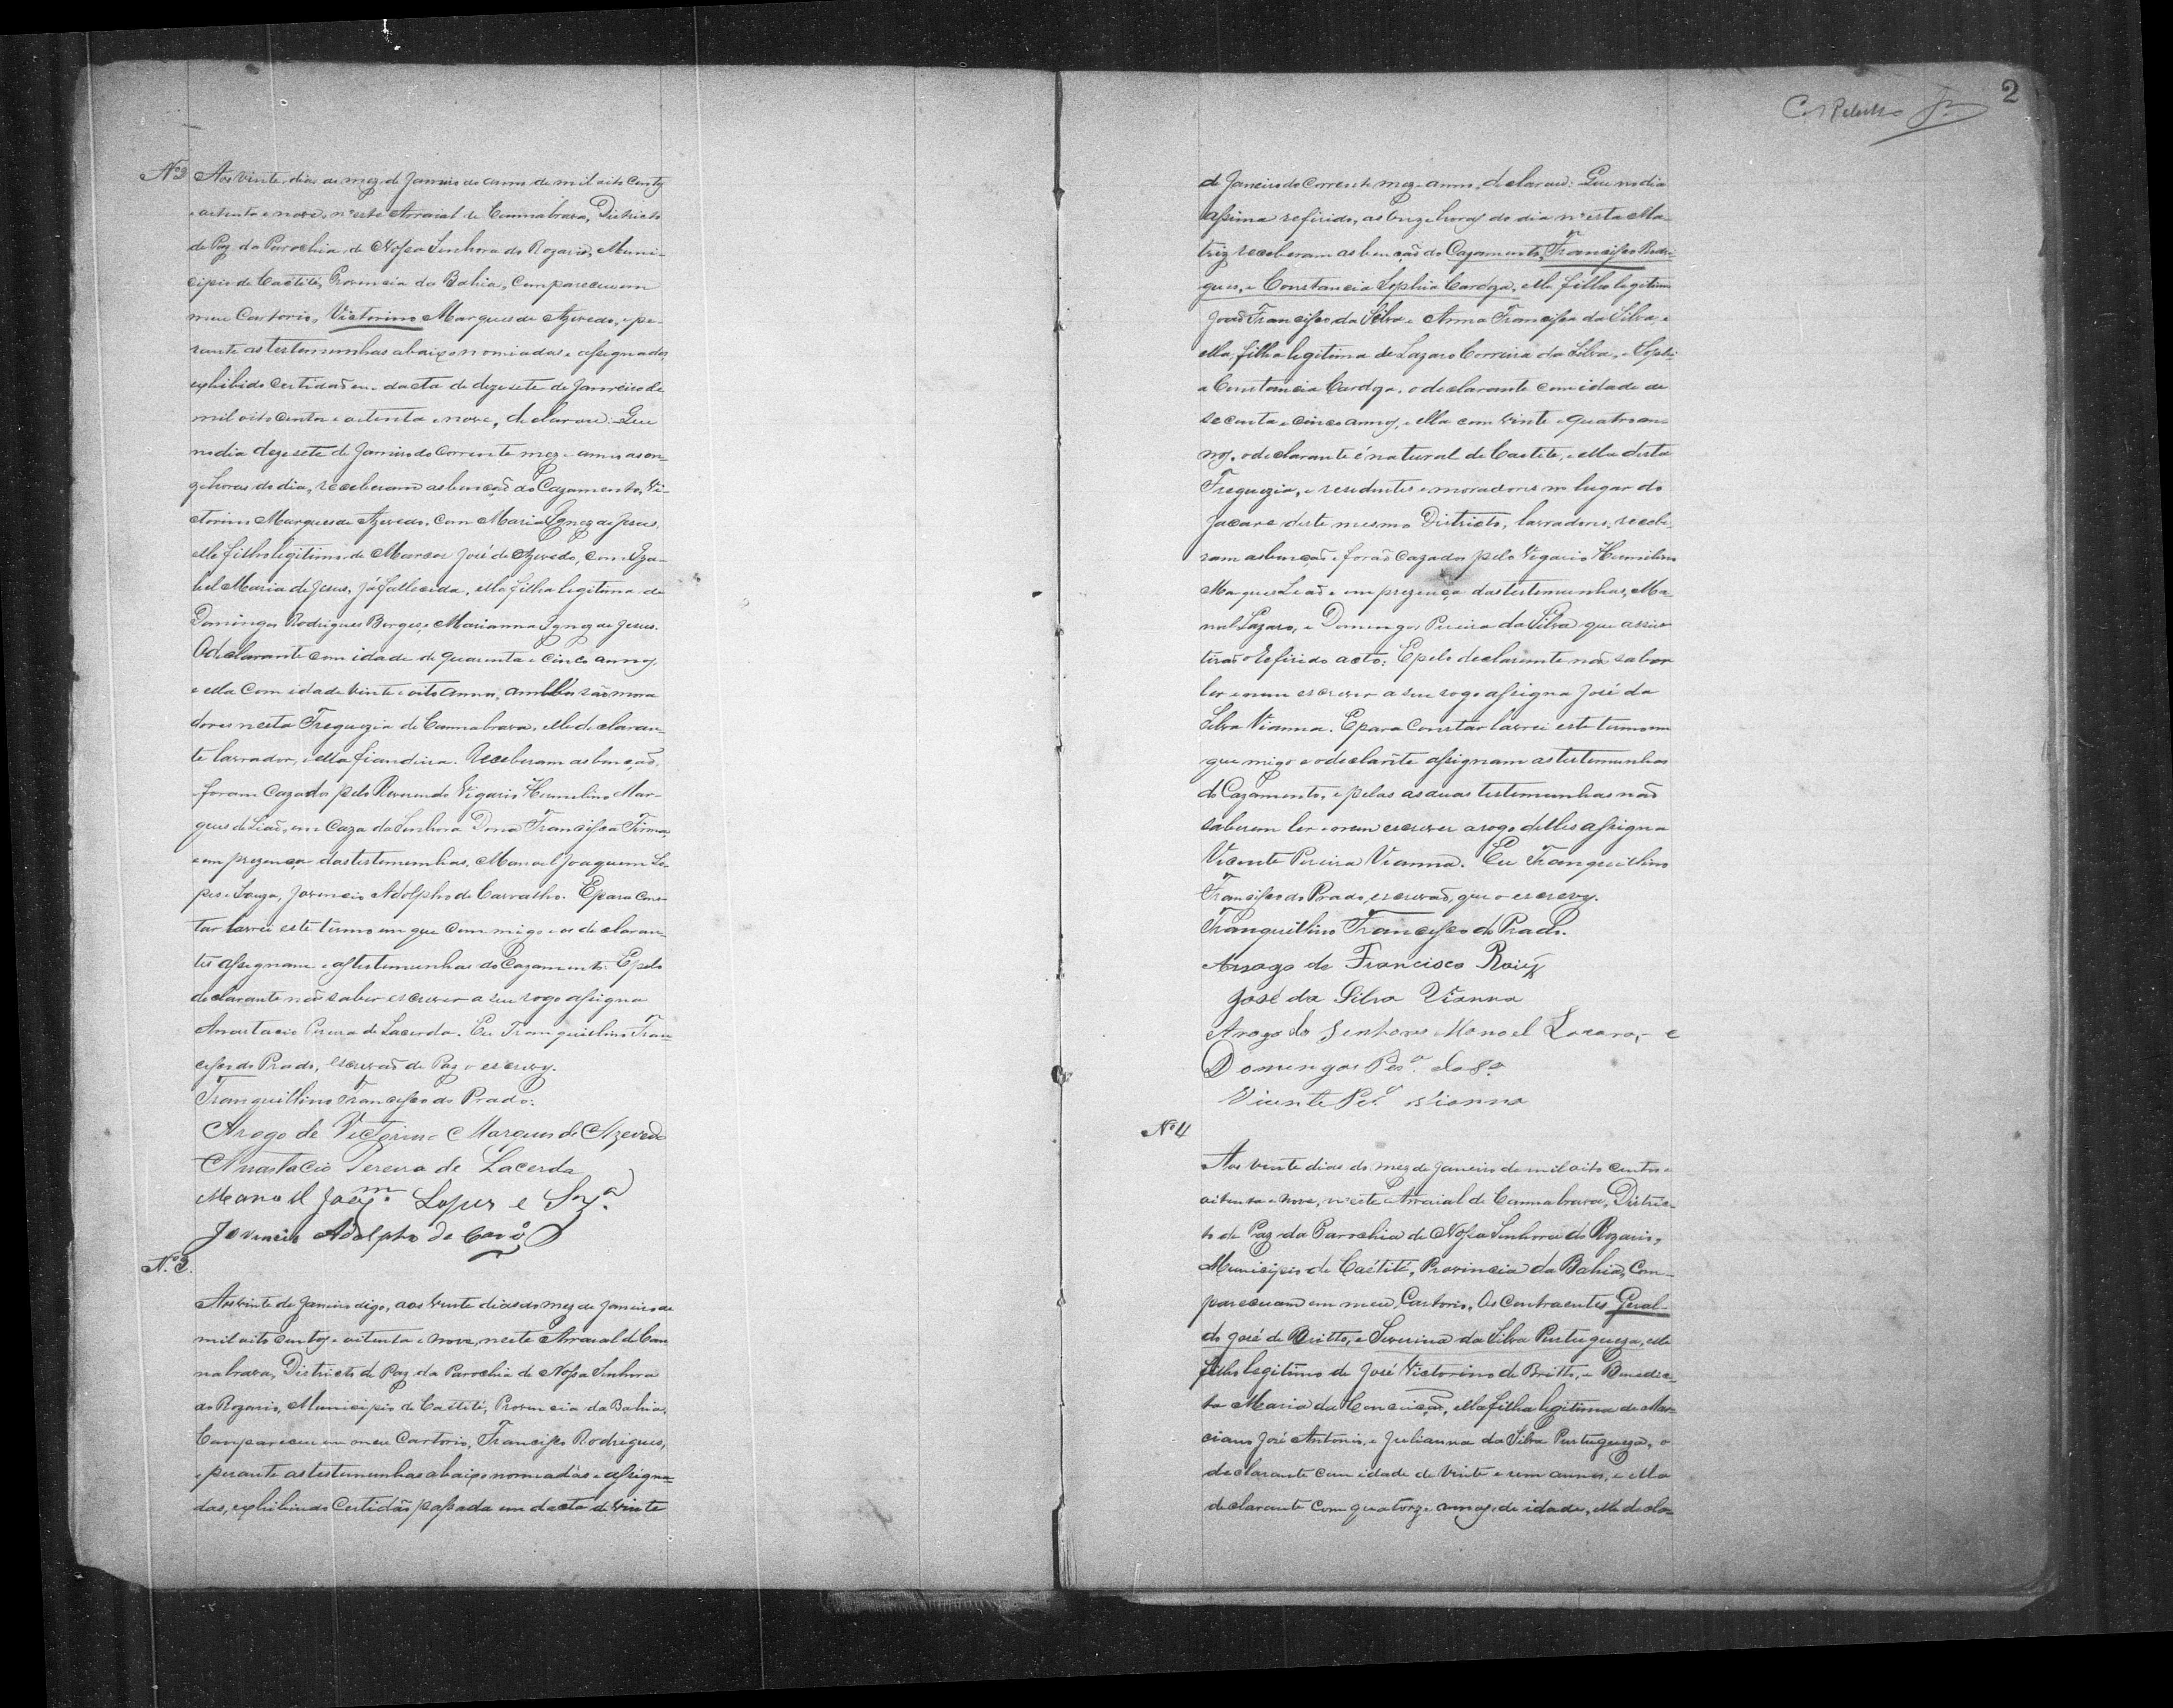 Nº 2 Aos vinte dias do mez de Janeiro do anno de mil oito centos
e oitenta e nove, n'este Arraial de Cannabrava, Districto
de Paz da Parochia de Nossa Senhora do Rozario, Muni-
cipio de Caetité, Provincia da Bahia, Compareceu em
meu Cartorio, Victorino Marques de Azevedo, e pe-
rante as testemunhas abaixo nomiadas e assignadas,
exhibido certidaõ em dacta de dezesete de Janeiro de
mil oito centos e oitenta e nove, declarou: Que
no dia dezesete de Janeiro do corrente mez e anno as on-
ze horas do dia, receberam as bençaõ do Cazamento, Vi-
ctorino Marques de Azevedo, com Maria Ignez de Jesus,
elle filho legitimo de Marcos José de Azevedo, com Iza-
bel Maria de Jesus, já fallecida, ella filha legitima de
Domingos Rodrigues Borges, e Marianna Ignez de Jesus.
O declarante com idade de quarenta e cinco annos,
e ella com idade vinte e oito annos, ambos são mora
dores nesta Freguezia de Cannabrava, elle declaran-
te lavrador, e ella fiandeira. Receberam as bençaõ,
foram Cazados pelo Reverendo Vigario Hermelino Mar-
ques de Leaõ, em Caza da Senhora Dona Francisca Firma,
e em prezença das testemunhas, Manoel Joaquim Lo-
pes e Souza, Jovencio Adolpho de Carvalho. E para cons-
tar lavrei este termo em que commigo e os declaran-
tes assignam e as testemunhas do Cazamento. E pelo
declarante naõ saber escrever a seu rogo assigna
Anastacio Pereira de Lacerda. Eu Tranquillino Fran-
cisco do Prado, escrivaõ de Paz o escrevy.
Tranquillino Francisco do Prado.
Arogo de Victorino Marques de Azevedo
Anastacio Pereira de Lacerda
Manoel Joaqm. Lopes e Sza.
Jovencio Adolpho de Carvo.
Nº 3.
Aos vinte de Janeiro digo, aos vinte dias do mez de Janeiro de
mil oito centos e oitenta e nove, neste Arraial de Can
nabrava, Districto de Paz da Parochia de Nossa Senhora
do Rozario, Municipio de Caetité, Provincia da Bahia,
Compareceu em meu Cartorio, Francisco Rodrigues,
e perante as testemunhas abaixo nomeadas e assigna-
das, exhibindo Certidão passada em dacta de vinte
2
de Janeiro do Corrente mez e anno, declarou: Que no dia
assima refirido, as onze horas do dia n'esta Ma-
triz receberam as bençaõ do Cazamento, Francisco Rodri-
gues, e Constancia Sophia Cardoza, elle filho legitimo
João Francisco da Silva e Anna Francisca da Silva, e
ella filha legitima de Lazaro Correia da Silva, e Sophi
a Constancia Cardoza, o declarante com idade de
secenta e cinco annos, e ella com vinte e quatro an-
nos, o declarante é natural de Caetite, e ella desta
Freguezia, e residentes e moradores no lugar do
Jacare deste mesmo Districto, lavradores, recebe-
ram as bençaõ e foraõ cazados pelo Vigario Hermelino
Marques Leaõ e em prezença das testemunhas, Ma-
noel Lazaro, e Domingos Pereira da Silva que assis-
tiraõ o refirido acto: E pelo declarante naõ saber
ler e nem escrever a seu rogo assigna José da
Silva Vianna. E para constar lavrei este termo em
que migo e o declarãte assignam as testemunhas
do Cazamento, e pelas as duas testemunhas naõ
saberem ler e nem escrever a rogo delles assigna
Vicente Pereira Vianna. Eu Tranquillino
Francisco do Prado, escrivaõ, que o escrevy.
Tranquillino Francisco do Prado.
Arrogo de Francisco Roiz
José da Silva Vianna
Arogo do Senhores Manoel Lazaro, e
Domingos Pera. da Sa.
Vicente Pera. Vianna
Nº 4
Aos vinte dias do mez de Janeiro de mil oito centos e
oitenta e nove, n'este Arraial de Cannabrava, Distric-
to de Paz da Parochia de Nossa Senhora do Rozario,
Municipio de Caetité, Provincia da Bahia, Com-
pareceram em meu Cartorio, Os Contraentes Geral-
do José de Britto, e Severina da Silva Portugueza, elle
filho legitimo de José Victorino de Britto, e Benedic-
ta Maria da Conceiçaõ, ella filha legitima de Mar-
ciano José Antonio, e Julianna da Silva Portugueza, o
declarante com idade de vinte e um annos, e ella
declarante com quatorze annos de idade, elle decla-